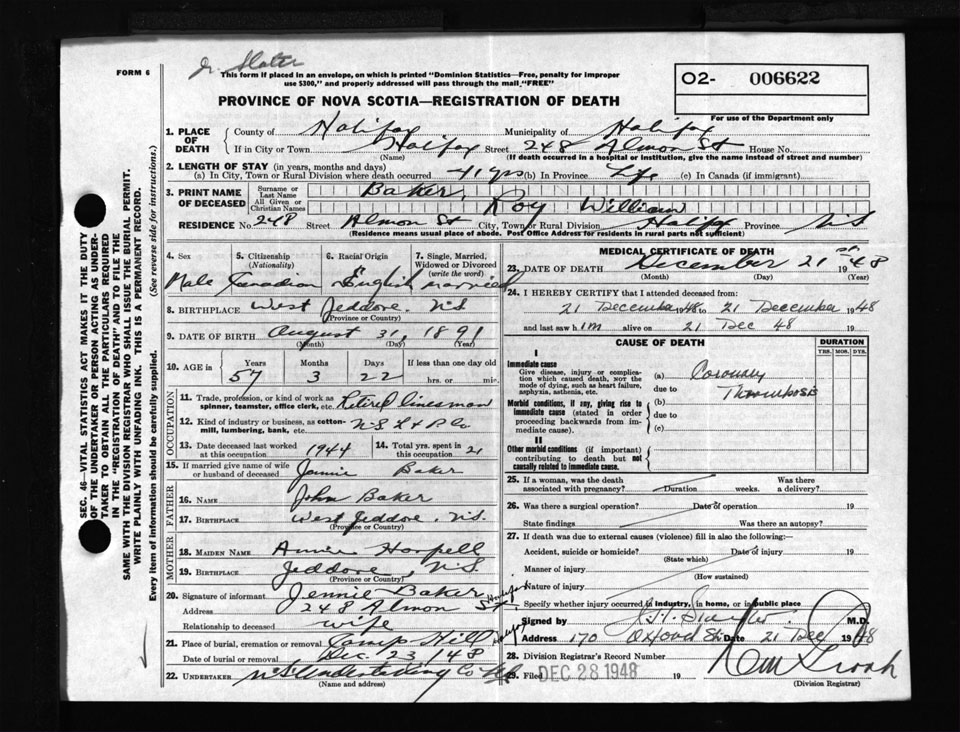 FORM 6
This form if placed in an envelope, on which is printed "Dominion Statistics—Free, penalty for improper
use $300," and properly addressed will pass through the mail "FREE"
O2- 006622
For use of the Department only
PROVINCE OF NOVA SCOTIA—REGISTRATION OF DEATH
SEC. 46—VITAL STATISTICS ACT MAKES IT THE DUTY
OF THE UNDERTAKER OR PERSON ACTING AS UNDER-
TAKER TO OBTAIN ALL THE PARTICULARS REQUIRED
IN THE "REGISTRATION OF DEATH" AND TO FILE THE
SAME WITH THE DIVISION REGISTRAR WHO SHALL ISSUE THE BURIAL PERMIT.
WRITE PLAINLY WITH UNFADING INK. THIS IS A PERMANENT RECORD.
Every item of information should be carefully supplied. (See reverse side for instructions.)
1. PLACE OF DEATH County of Halifax Municipality of Halifax
If in City or Town Halifax Street 248 Almon St House No.
(Name) (If death occurred in a hospital or institution, give the name instead of street and number)
2. LENGTH OF STAY (in years, months and days)
(a) In City, Town or Rural Division where death occurred 41 yrs (b) In Province Life (c) In Canada (if immigrant)
3. PRINT NAME OF DECEASED Surname or Last Name Baker
All Given or Christian Names Roy William
RESIDENCE No. 248 Street Almon St City, Town or Rural Division Halifax Province N S
(Residence means usual place of abode. Post Office Address for residents in rural parts not sufficient)
4. Sex 5. Citizenship (Nationality) 6. Racial Origin 7. Single, Married, Widowed or Divorced (write the word)
Male Canadian English married
8. BIRTHPLACE West Jeddore N S
(Province or Country)
9. DATE OF BIRTH August 31, 1891
(Month) (Day) (Year)
10. AGE in Years Months Days If less than one day old
57 3 22 hrs. or min.
OCCUPATION
11. Trade, profession, or kind of work as spinner, teamster, office clerk, etc. Retired linesman
12. Kind of industry or business, as cotton-mill, lumbering, bank, etc. N S L & P Co
13. Date deceased last worked at this occupation 1944 14. Total yrs. spent in this occupation 21
15. If married give name of wife or husband of deceased Jennie Baker
FATHER
16. NAME John Baker
17. BIRTHPLACE West Jeddore, N.S.
(Province or Country)
MOTHER
18. MAIDEN NAME Annie Harpell
19. BIRTHPLACE Jeddore, N S
(Province or Country)
20. Signature of informant Jennie Baker
Address 248 Almon St. Halifax
Relationship to deceased wife
21. Place of burial, cremation or removal Camp Hill Halifax
Date of burial or removal Dec. 23, 148
22. UNDERTAKER N S Undertaking Co
(Name and address)
MEDICAL CERTIFICATE OF DEATH
23. DATE OF DEATH December 21 st 1948
(Month) (Day)
24. I HEREBY CERTIFY that I attended deceased from
21 December 1948 to 21 December 1948
and last saw him alive on 21 Dec 48 19
CAUSE OF DEATH DURATION
YRS. MOS. DYS.
I
Immediate cause
Give disease, injury or complica-
tion which caused death, not the
mode of dying, such as heart failure,
asphyxia, asthenia, etc.
(a) Coronary
due to Thrombosis
Morbid conditions, if any, giving rise to
immediate cause (stated in order
proceeding backwards from im-
mediate cause).
(b)
due to
(c)
II
Other morbid conditions (if important)
contributing to death but not
causally related to immediate cause.
25. If a woman, was the death associated with pregnancy? Duration weeks. Was there a delivery?
26. Was there a surgical operation? Date of operation 19
State findings Was there an autopsy?
27. If death was due to external causes (violence) fill in also the following:
Accident, suicide or homicide? Date of injury 19
(State which)
Manner of injury
(How sustained)
Nature of injury
Specify whether injury occurred in industry, in home, or in public place
Signed by M.D.
Address 170 Oxford St. Date 21 Dec 1948
28. Division Registrar's Record Number
29. Filed DEC 28 1948 19
(Division Registrar)